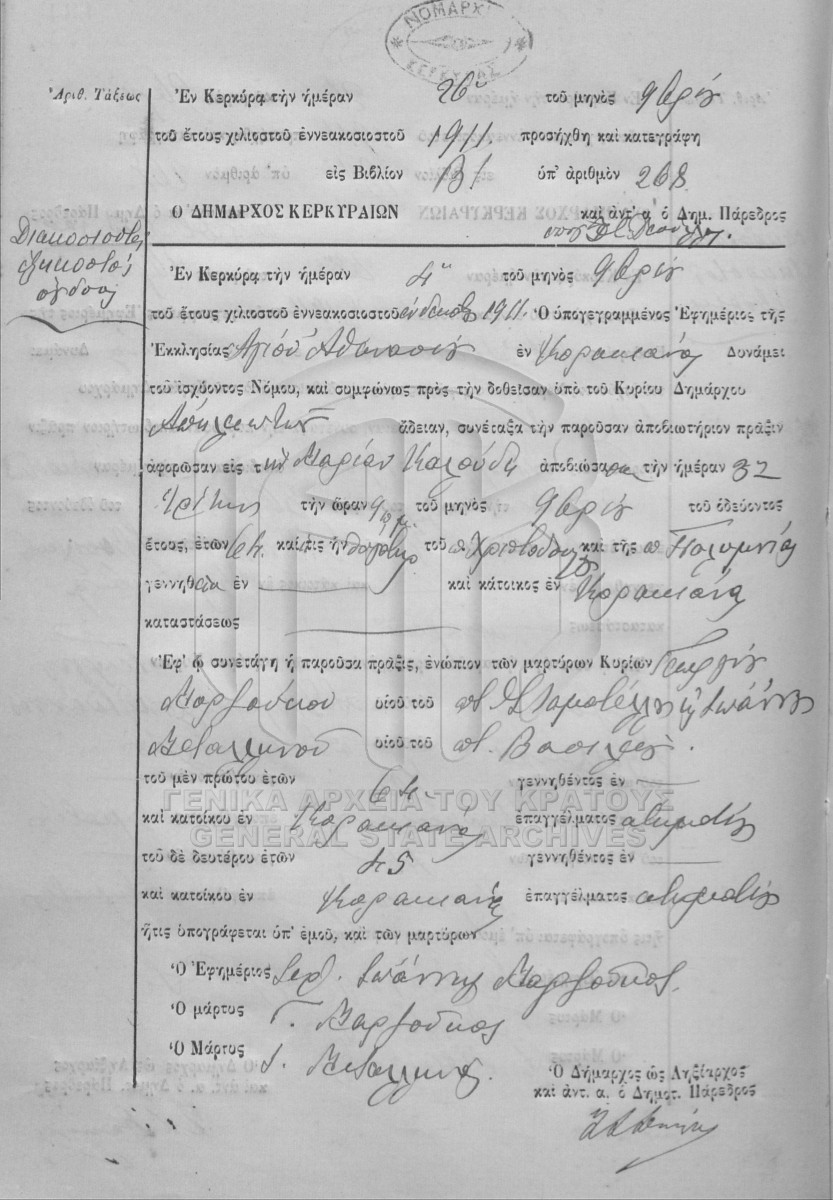 ΝΟΜΑΡΧΙ
ΚΕΡΚΥΡΑΣ
Ἀριθ. Τάξεως
Ἐν Κερκύρᾳ τὴν ἡμέραν 26 τοῦ μηνὸς 9βρίου
τοῦ ἔτους χιλιοστοῦ ἐννεακοσιοστοῦ 1911. προσήχθη καὶ κατεγράφη
εἰς Βιβλίον Β/ ὑπ' ἀριθμὸν 268
Ο ΔΗΜΑΡΧΟΣ ΚΕΡΚΥΡΑΙΩΝ καὶ ἀντ' α' ὁ Δημ. Πάρεδρος
Διακοσιοστὸς
ἑξηκοστὸς
ὄγδοος
Ἐν Κερκύρᾳ τὴν ἡμέραν 4 τοῦ μηνὸς 9βρίου
τοῦ ἔτους χιλιοστοῦ ἐννεακοσιοστοῦ ἑνδεκάτου 1911. Ὁ ὑπογεγραμμένος Ἐφημέριος τῆς
Ἐκκλησίας Ἁγίου Ἀθανασίου ἐν Κορακιάνᾳ Δυνάμει
τοῦ ἰσχύοντος Νόμου, καὶ συμφώνως πρὸς τὴν δοθεῖσαν ὑπὸ τοῦ Κυρίου Δημάρχου
ἄδειαν, συνέταξα τὴν παροῦσαν ἀποβιωτήριον πρᾶξιν
ἀφορῶσαν εἰς τὴν Μαρίαν Καλούδη ἀποβιώσασαν τὴν ἡμέραν
Τρίτην τὴν ὥραν 9 π.μ. τοῦ μηνὸς 9βρίου τοῦ ὁδεύοντος
ἔτους, ἐτῶν 64. καὶ τις ἦν θυγάτηρ τοῦ π. Χριστοδούλου καὶ τῆς π. Πολυμνίας
γεννηθεῖσα ἐν καὶ κάτοικος ἐν Κορακιάνᾳ
καταστάσεως
Ἐφ' ᾧ συνετάγη ἡ παροῦσα πρᾶξις, ἐνώπιον τῶν μαρτύρων Κυρίων Γεωργίου
Μαρζούκου υἱοῦ τοῦ π. Σταματέλλου καὶ Ἰωάννου
Μεταλληνοῦ υἱοῦ τοῦ π. Βασιλείου.
τοῦ μὲν πρώτου ἐτῶν 64. γεννηθέντος ἐν
ΓΕΝΙΚΑ ΑΡΧΕΙΑ ΤΟΥ ΚΡΑΤΟΥΣ
καὶ κατοίκου ἐν Κορακιάνᾳ ἐπαγγέλματος κτηματίου
GENERAL STATE ARCHIVES
τοῦ δὲ δευτέρου ἐτῶν 45 γεννηθέντος ἐν
καὶ κατοίκου ἐν Κορακιάνᾳ ἐπαγγέλματος κτηματίου
ἥτις ὑπογράφεται ὑπ' ἐμοῦ, καὶ τῶν μαρτύρων
Ὁ Ἐφημέριος Ἱερ. Ἰωάννης Μαρζοῦκος.
Ὁ μάρτυς Γ. Μαρζοῦκος
Ὁ Μάρτυς Ι. Μεταλληνός.
Ὁ Δήμαρχος ὡς Ληξίαρχος
καὶ ἀντ. α. ὁ Δημοτ. Πάρεδρος